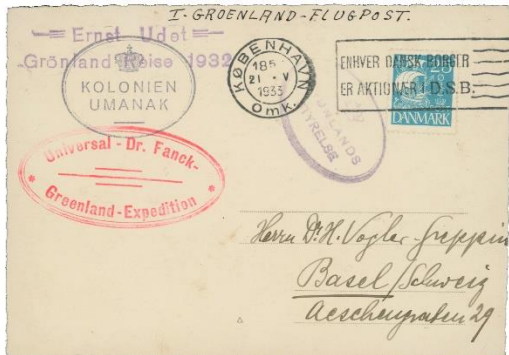 I-GROENLAND-FLUGPOST.
Ernst Udet
Grönland Reise 1932
KOLONIEN
UMANAK
KØBENHAVN
185
21 · V
1933
Omk.
ENHVER DANSK BORGER
ER AKTIONÆR I D.S.B.
20
DANMARK
STYRELSE
Universal - Dr. Fanck-
Greenland-Expedition
Herrn Dr. H. Vogler-Greppin
Basel/Schweiz
Aeschengraben 29